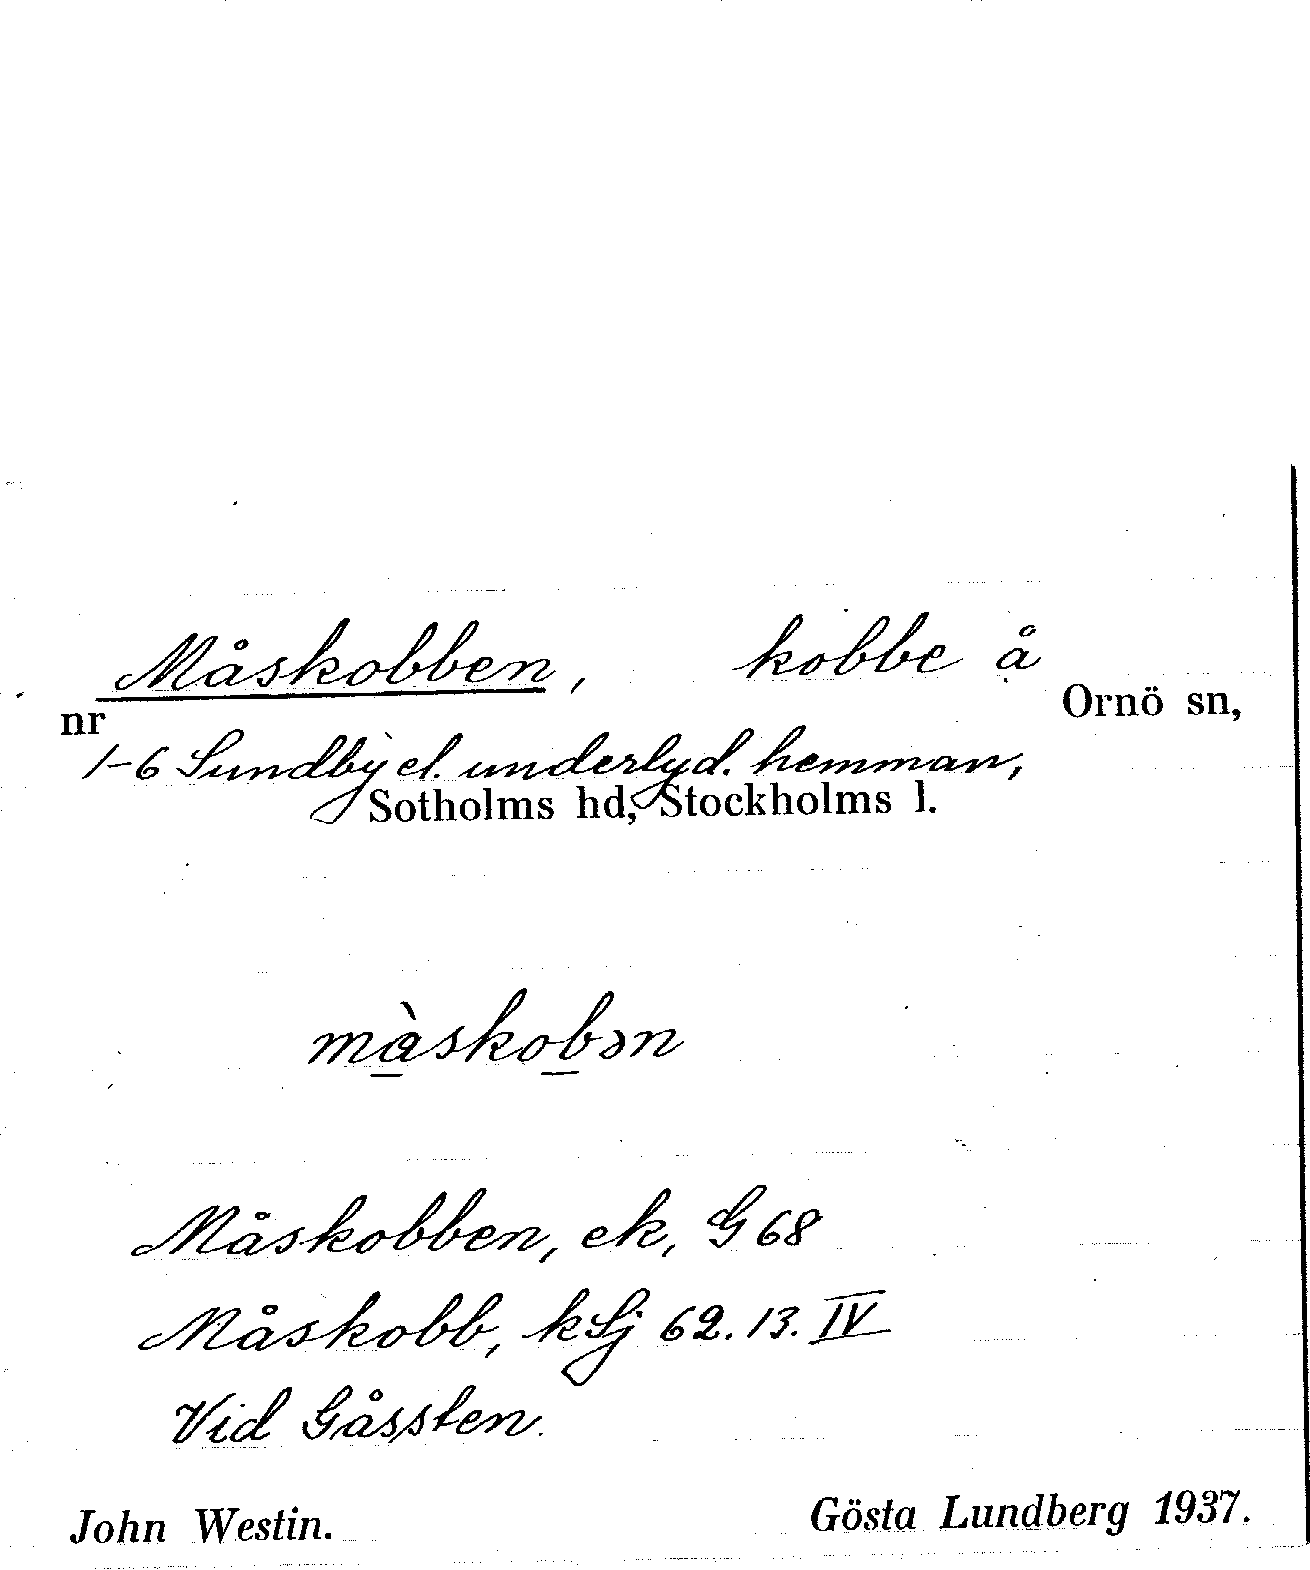 Måskobben, kobbe å
Ornö sn,
nr
1-6 Sundby el. underlyd. hemman,
Sotholms hd, Stockholms l.
màskobən
Måskobben, ek, G 68
Måskobb, kSj 62. 13. IV
Vid Gåssten.
John Westin. Gösta Lundberg 1937.